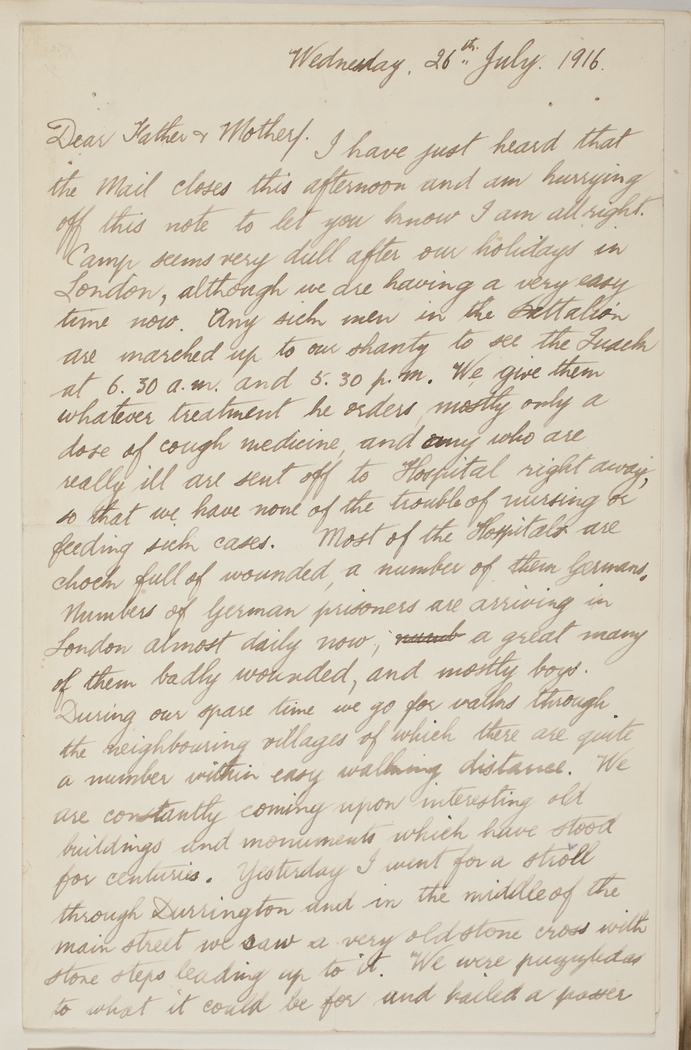 Wednesday, 26th July. 1916.
Dear Father & Mother/.
I have just heard that
the Mail closes this afternoon and am hurrying
off this note to let you know I am all right.
Camp seems very dull after our holidays in
London, although we are having a very easy
time now. Any sick men in the Battalion
are marched up to our shanty to see the Quack
at 6.30 a.m. and 5.30 p.m. We give them
whatever treatment he orders, mostly only a
dose of cough medicine, and any who are
really ill are sent off to Hospital right away,
so that we have none of the trouble of nursing or
feeding sick cases. Most of the Hospitals are
chock full of wounded, a number of them Germans.
Numbers of German prisoners are arriving in
London almost daily now, numb a great many
of them badly wounded, and mostly boys.
During our spare time we go for walks through
the neighbouring villages of which there are quite
a number within easy walking distance. We
are constantly coming upon interesting old
buildings and monuments which have stood
for centuries. Yesterday I went for a stroll
through Durrington and in the middle of the
main street we saw a very old stone cross with
stone steps leading up to it. We were puzzled as
to what it could be for and hailed a passer